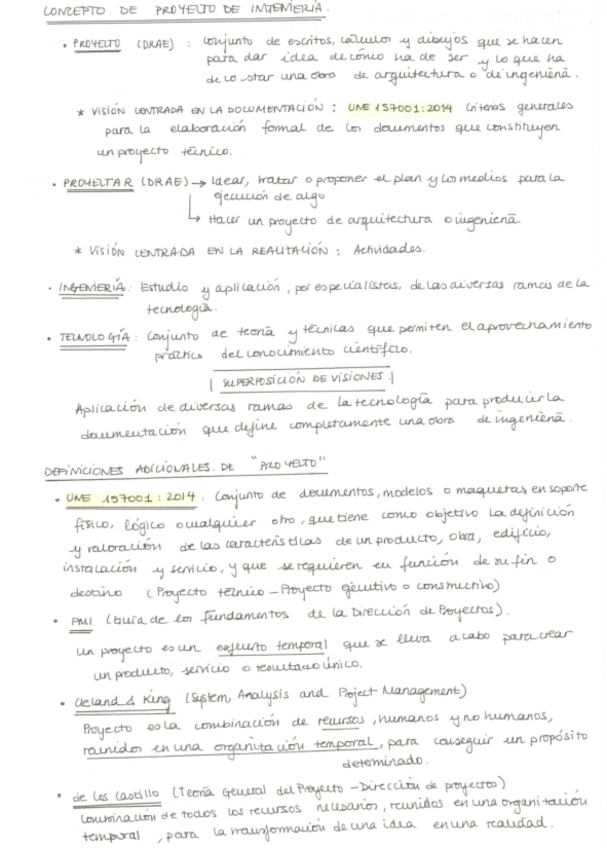 CONCEPTO DE PROYECTO DE INGENIERÍA.
• PROYECTO (DRAE) : Conjunto de escritos, cálculos y dibujos que se hacen
para dar idea de cómo ha de ser y lo que ha
de costar una obra de arquitectura o de ingeniería.
* VISIÓN CENTRADA EN LA DOCUMENTACIÓN : UNE 157001:2014 Criterios generales
para la elaboración formal de los documentos que constituyen
un proyecto técnico.
• PROYECTAR (DRAE) → Idear, trazar o proponer el plan y los medios para la
ejecución de algo
↳ Hacer un proyecto de arquitectura o ingeniería
* VISIÓN CENTRADA EN LA REALIZACIÓN : Actividades.
• INGENIERÍA: Estudio y aplicación, por especialistas, de las diversas ramas de la
tecnología.
• TECNOLOGÍA: Conjunto de teoría y técnicas que permiten el aprovechamiento
práctico del conocimiento científico.
| SUPERPOSICIÓN DE VISIONES |
Aplicación de diversas ramas de la tecnología para producir la
documentación que define completamente una obra de ingeniería.
DEFINICIONES ADICIONALES DE "PROYECTO"
• UNE 157001:2014. Conjunto de documentos, modelos o maquetas, en soporte
físico, lógico o cualquier otro, que tiene como objetivo la definición
y valoración de las características de un producto, obra, edificio,
instalación y servicio, y que se requieren en función de su fin o
destino (Proyecto técnico – Proyecto ejecutivo o constructivo)
• PMI (Guía de los Fundamentos de la Dirección de Proyectos).
Un proyecto es un esfuerzo temporal que se lleva a cabo para crear
un producto, servicio o resultado único.
• Cleland & King (System, Analysis and Project Management)
Proyecto es la combinación de recursos, humanos y no humanos,
reunidos en una organización temporal, para conseguir un propósito
determinado.
• de Cos Castillo (Teoría General del Proyecto – Dirección de proyectos)
Combinación de todos los recursos necesarios, reunidos en una organización
temporal, para la transformación de una idea en una realidad.